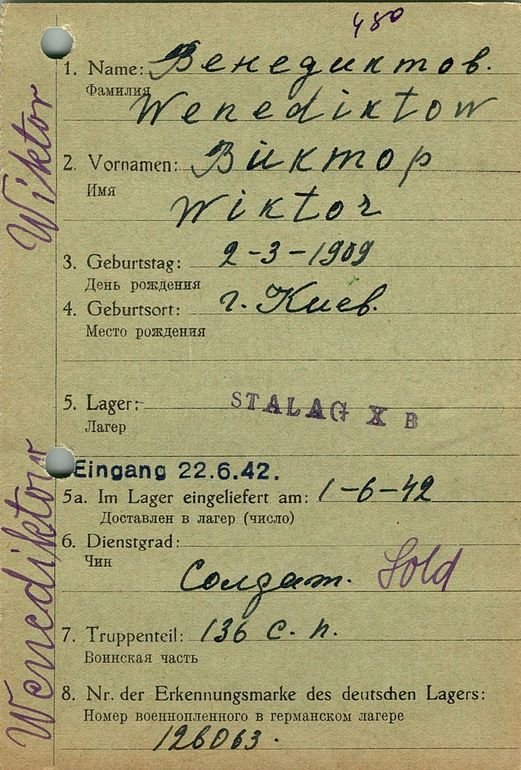 480
1. Name: Венедиктов.
Фамилия
Wenediktow
2. Vornamen: Виктор
Имя
Wiktor
3. Geburtstag: 2-3-1909
День рождения
4. Geburtsort: г. Киев.
Место рождения
5. Lager: STALAG X B
Лагер
Eingang 22.6.42.
5a. Im Lager eingeliefert am: 1-6-42
Доставлен в лагер (число)
6. Dienstgrad:
Чин
Солдат. Sold
7. Truppenteil: 136 с. п.
Воинская часть
8. Nr. der Erkennungsmarke des deutschen Lagers:
Номер военнопленного в германском лагере
126063.
Wenediktow Wiktor